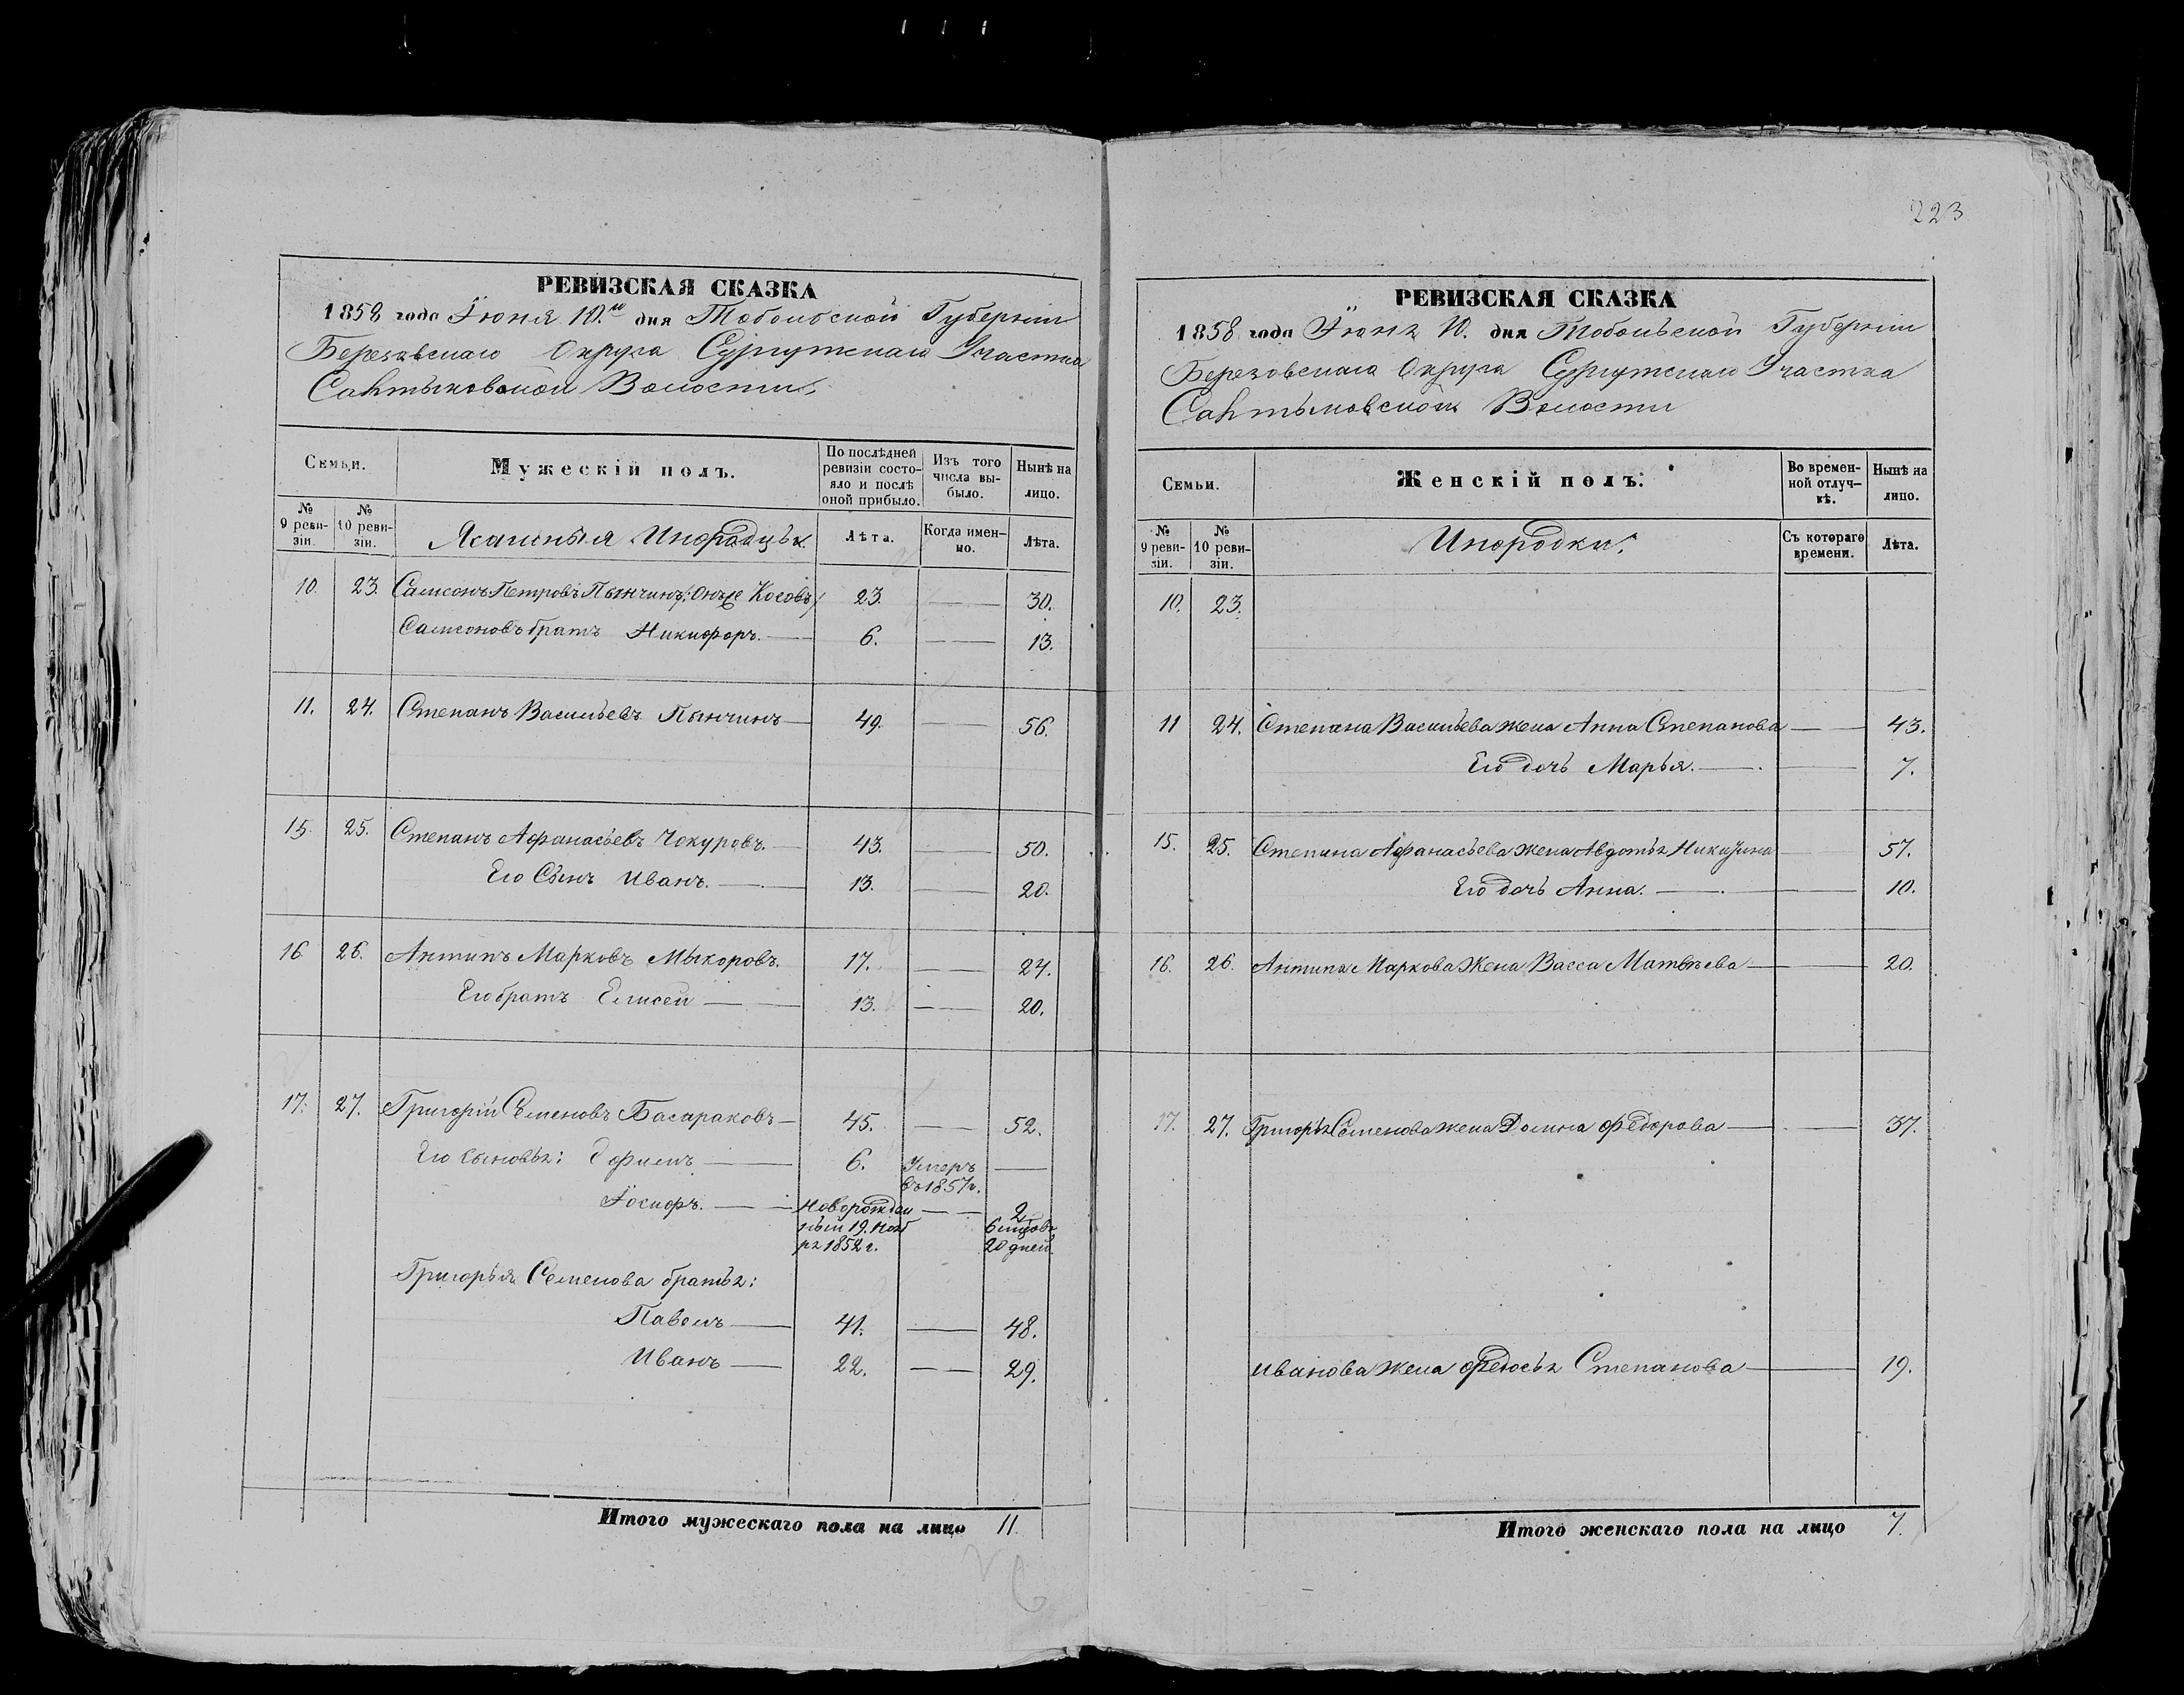 223
РЕВИЗСКАЯ СКАЗКА
1858 года Іюня 10.го дня Тобольской Губерніи
Березовскаго Округа Сургутскаго Участка
Салтыковской Волости
Семьи.
Мужескій полъ.
По послѣдней ревизіи состояло и послѣ оной прибыло.
Изъ того числа выбыло.
Нынѣ на лицо.
№ 9 ревизіи.
№ 10 ревизіи.
Ясашныя Инородцы.
Лѣта.
Когда именно.
Лѣта.
10. 23. Самсонъ Петровъ Пынчинъ /: Онъ же Косовъ :/ 23. — 30.
Самсоновъ братъ Никифоръ. — 6. — 13.
11. 24. Степанъ Васильевъ Пынчинъ — 49. — 56.
15. 25. Степанъ Афанасьевъ Чокуровъ. — 43. — 50.
Его Сынъ Иванъ. — 13. — 20.
16. 26. Антипъ Марковъ Мыкоровъ. 17. — 24.
Его братъ Елисей — 13. — 20.
17. 27. Григорій Семеновъ Басараковъ — 45. — 52.
Его сыновья: Ефимъ — 6. Умеръ —
въ 1857 г.
Іосифъ. — Новорожден — 2
ный 19. Нояб 6 мцовъ
ря 1852 г. 20 дней
Григорья Семенова братья:
Павелъ — 41. — 48.
Иванъ — 22. — 29.
Итого мужескаго пола на лицо 11.
РЕВИЗСКАЯ СКАЗКА
1858 года Іюня 10. дня Тобольской Губерніи
Березовскаго Округа Сургутскаго Участка
Салтыковской Волости
Семьи.
Женскій полъ.
Во временной отлучкѣ.
Нынѣ на лицо.
№ 9 ревизіи.
№ 10 ревизіи.
Инородки.
Съ котораго времени.
Лѣта.
10. 23.
11 24. Степана Васильева жена Анна Степанова — 43.
Его дочь Марья. — 7.
15. 25. Степана Афанасьева жена Авдотья Никитина — 57.
Его дочь Анна. — 10.
16. 26. Антипа Маркова Жена Васса Матвѣева — 20.
17. 27. Григорья Семенова жена Домна Федорова — 37.
Иванова жена Федосья Степанова — 19.
Итого женскаго пола на лицо 7.